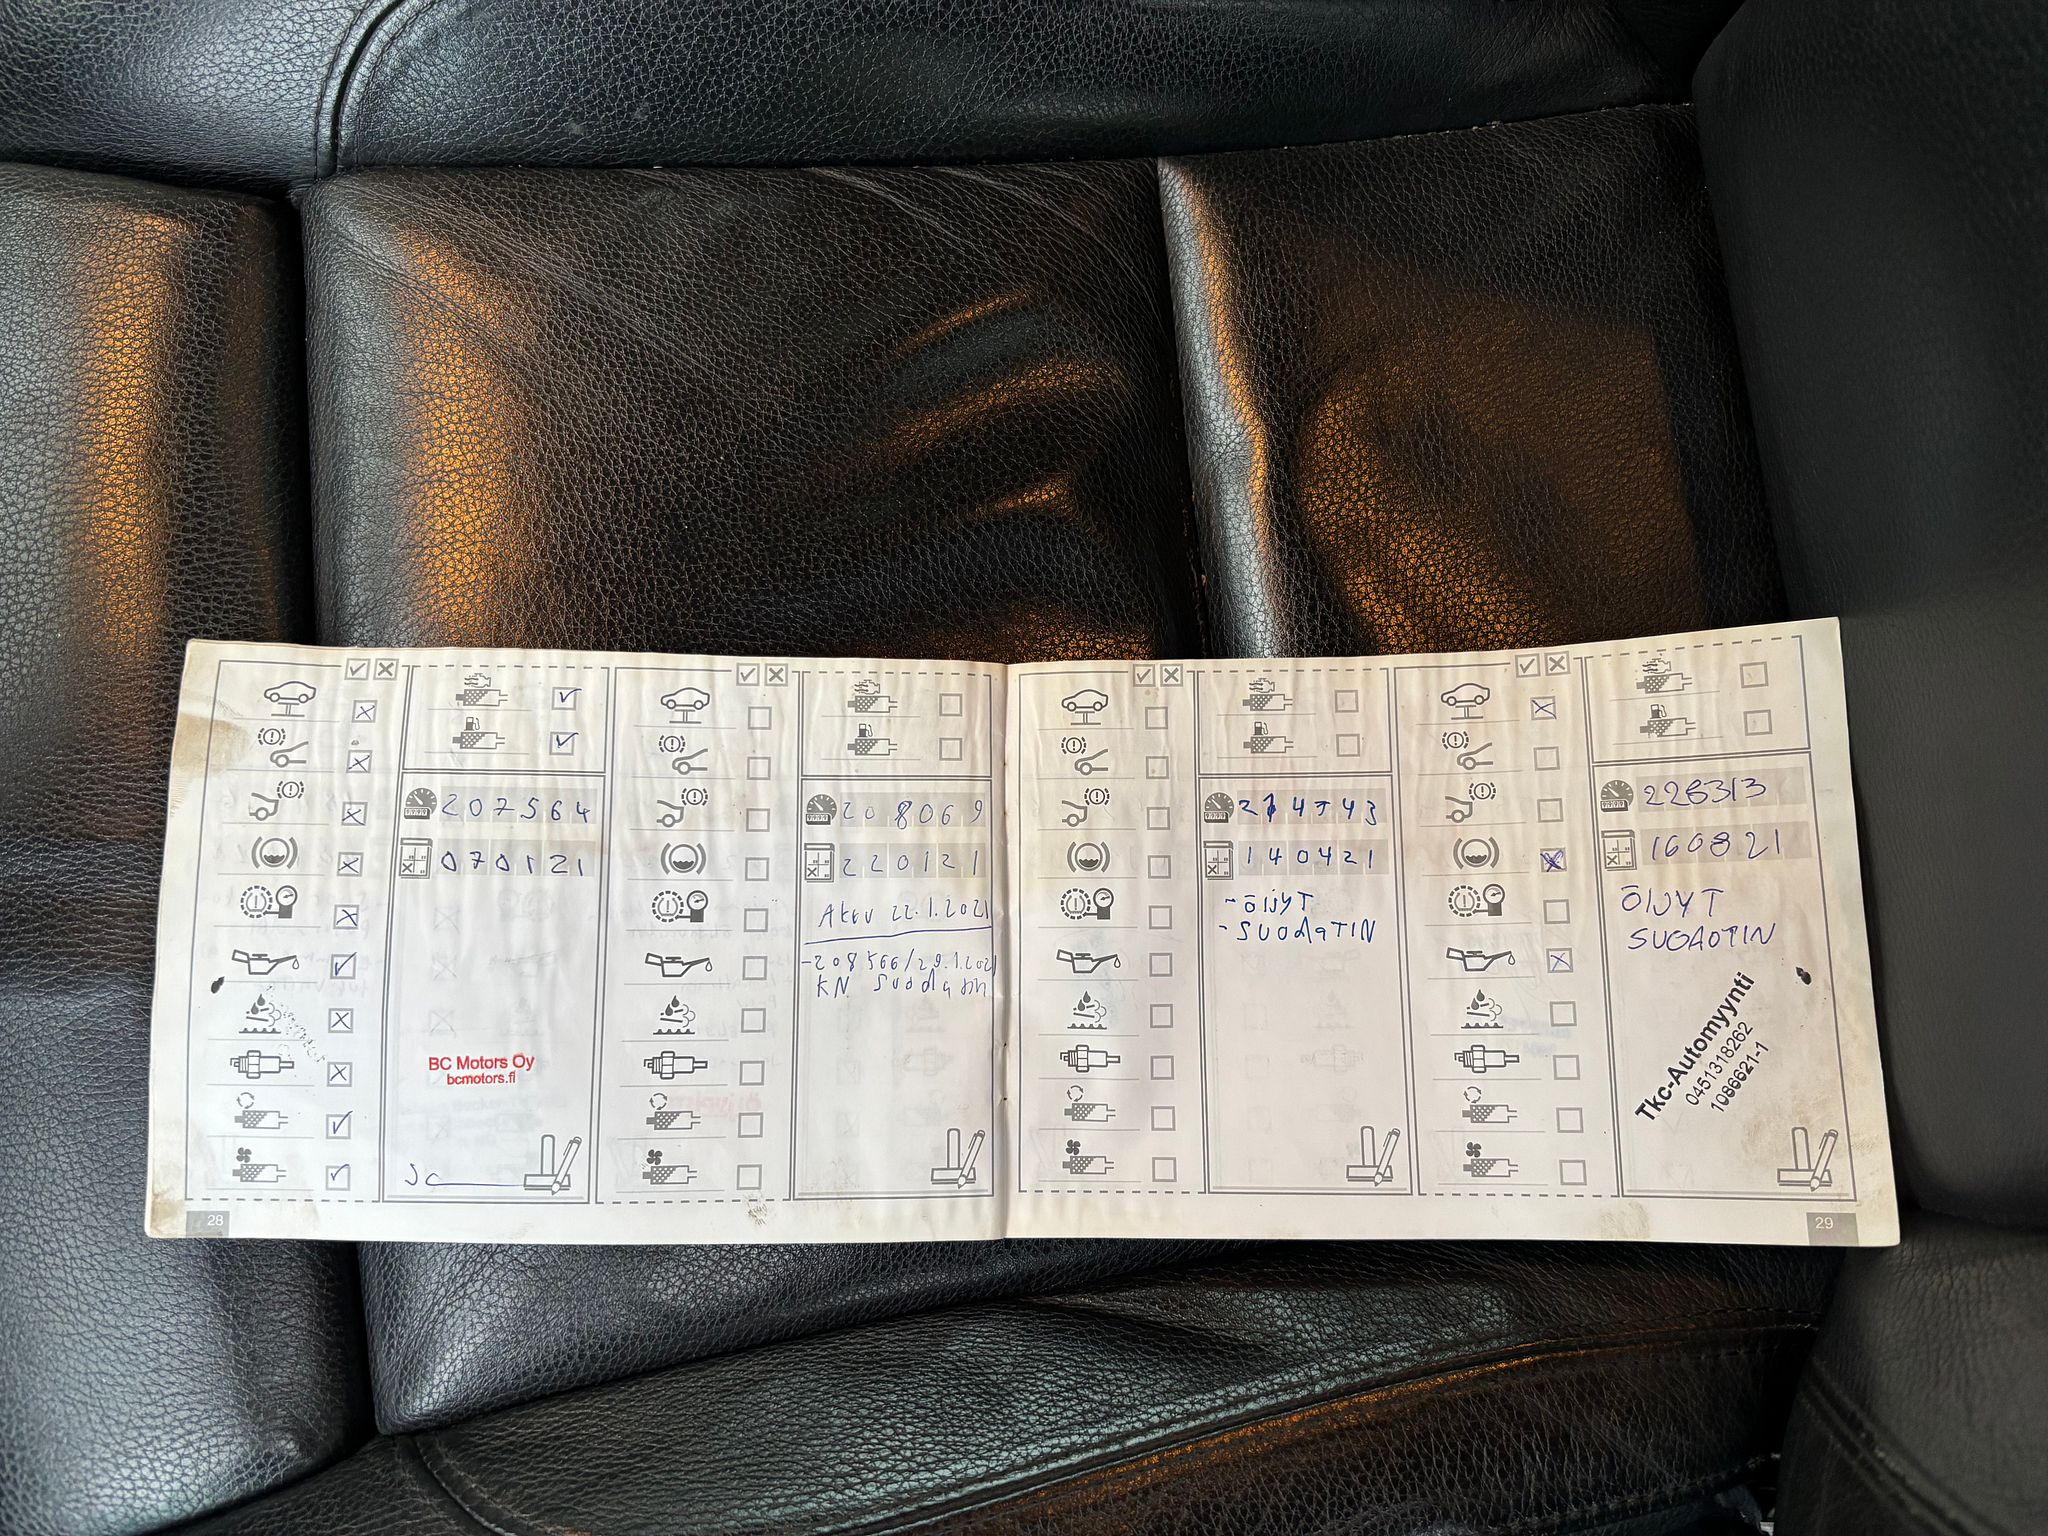 207564
070121
BC Motors Oy
bcmotors.fi
28
208069
220121
22.1.2021
KN suodatin
140421
- ÖIJYT
- SUODATIN
226313
160821
ÖIJYT
SUOAOTIN
Tkc-Automyynti
0451318262
1086621-1
29